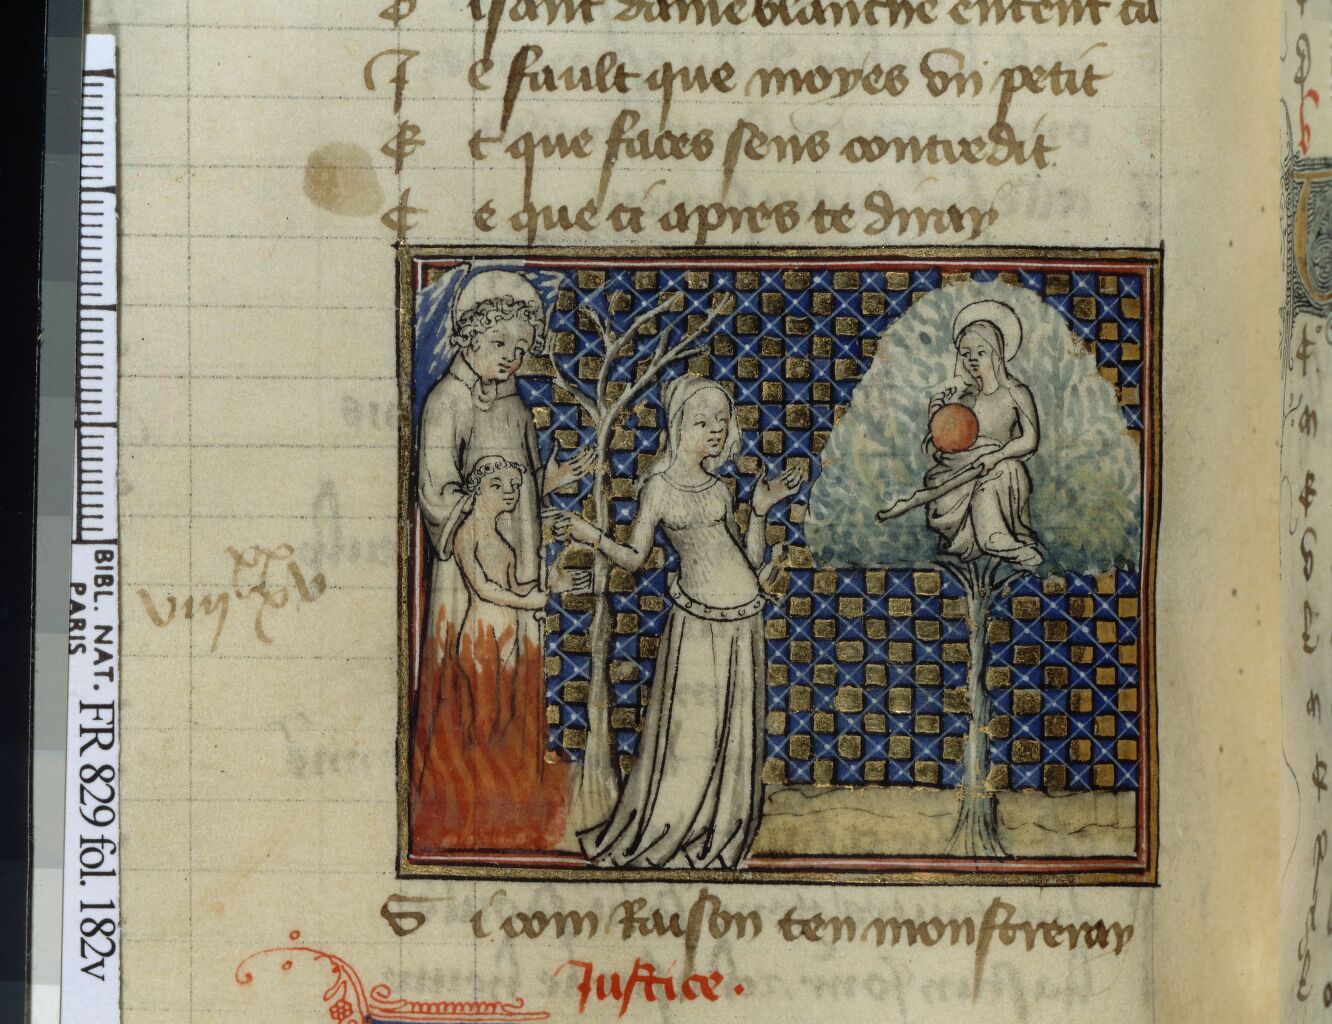 isant dame blanche entent ca
Je fault que moyes un petit
Et que faces sens contredit
Ce que ci apres te diray
Si com Raison ten monstreray
Justice.
BIBL. NAT. FR 829 fol. 182v
PARIS